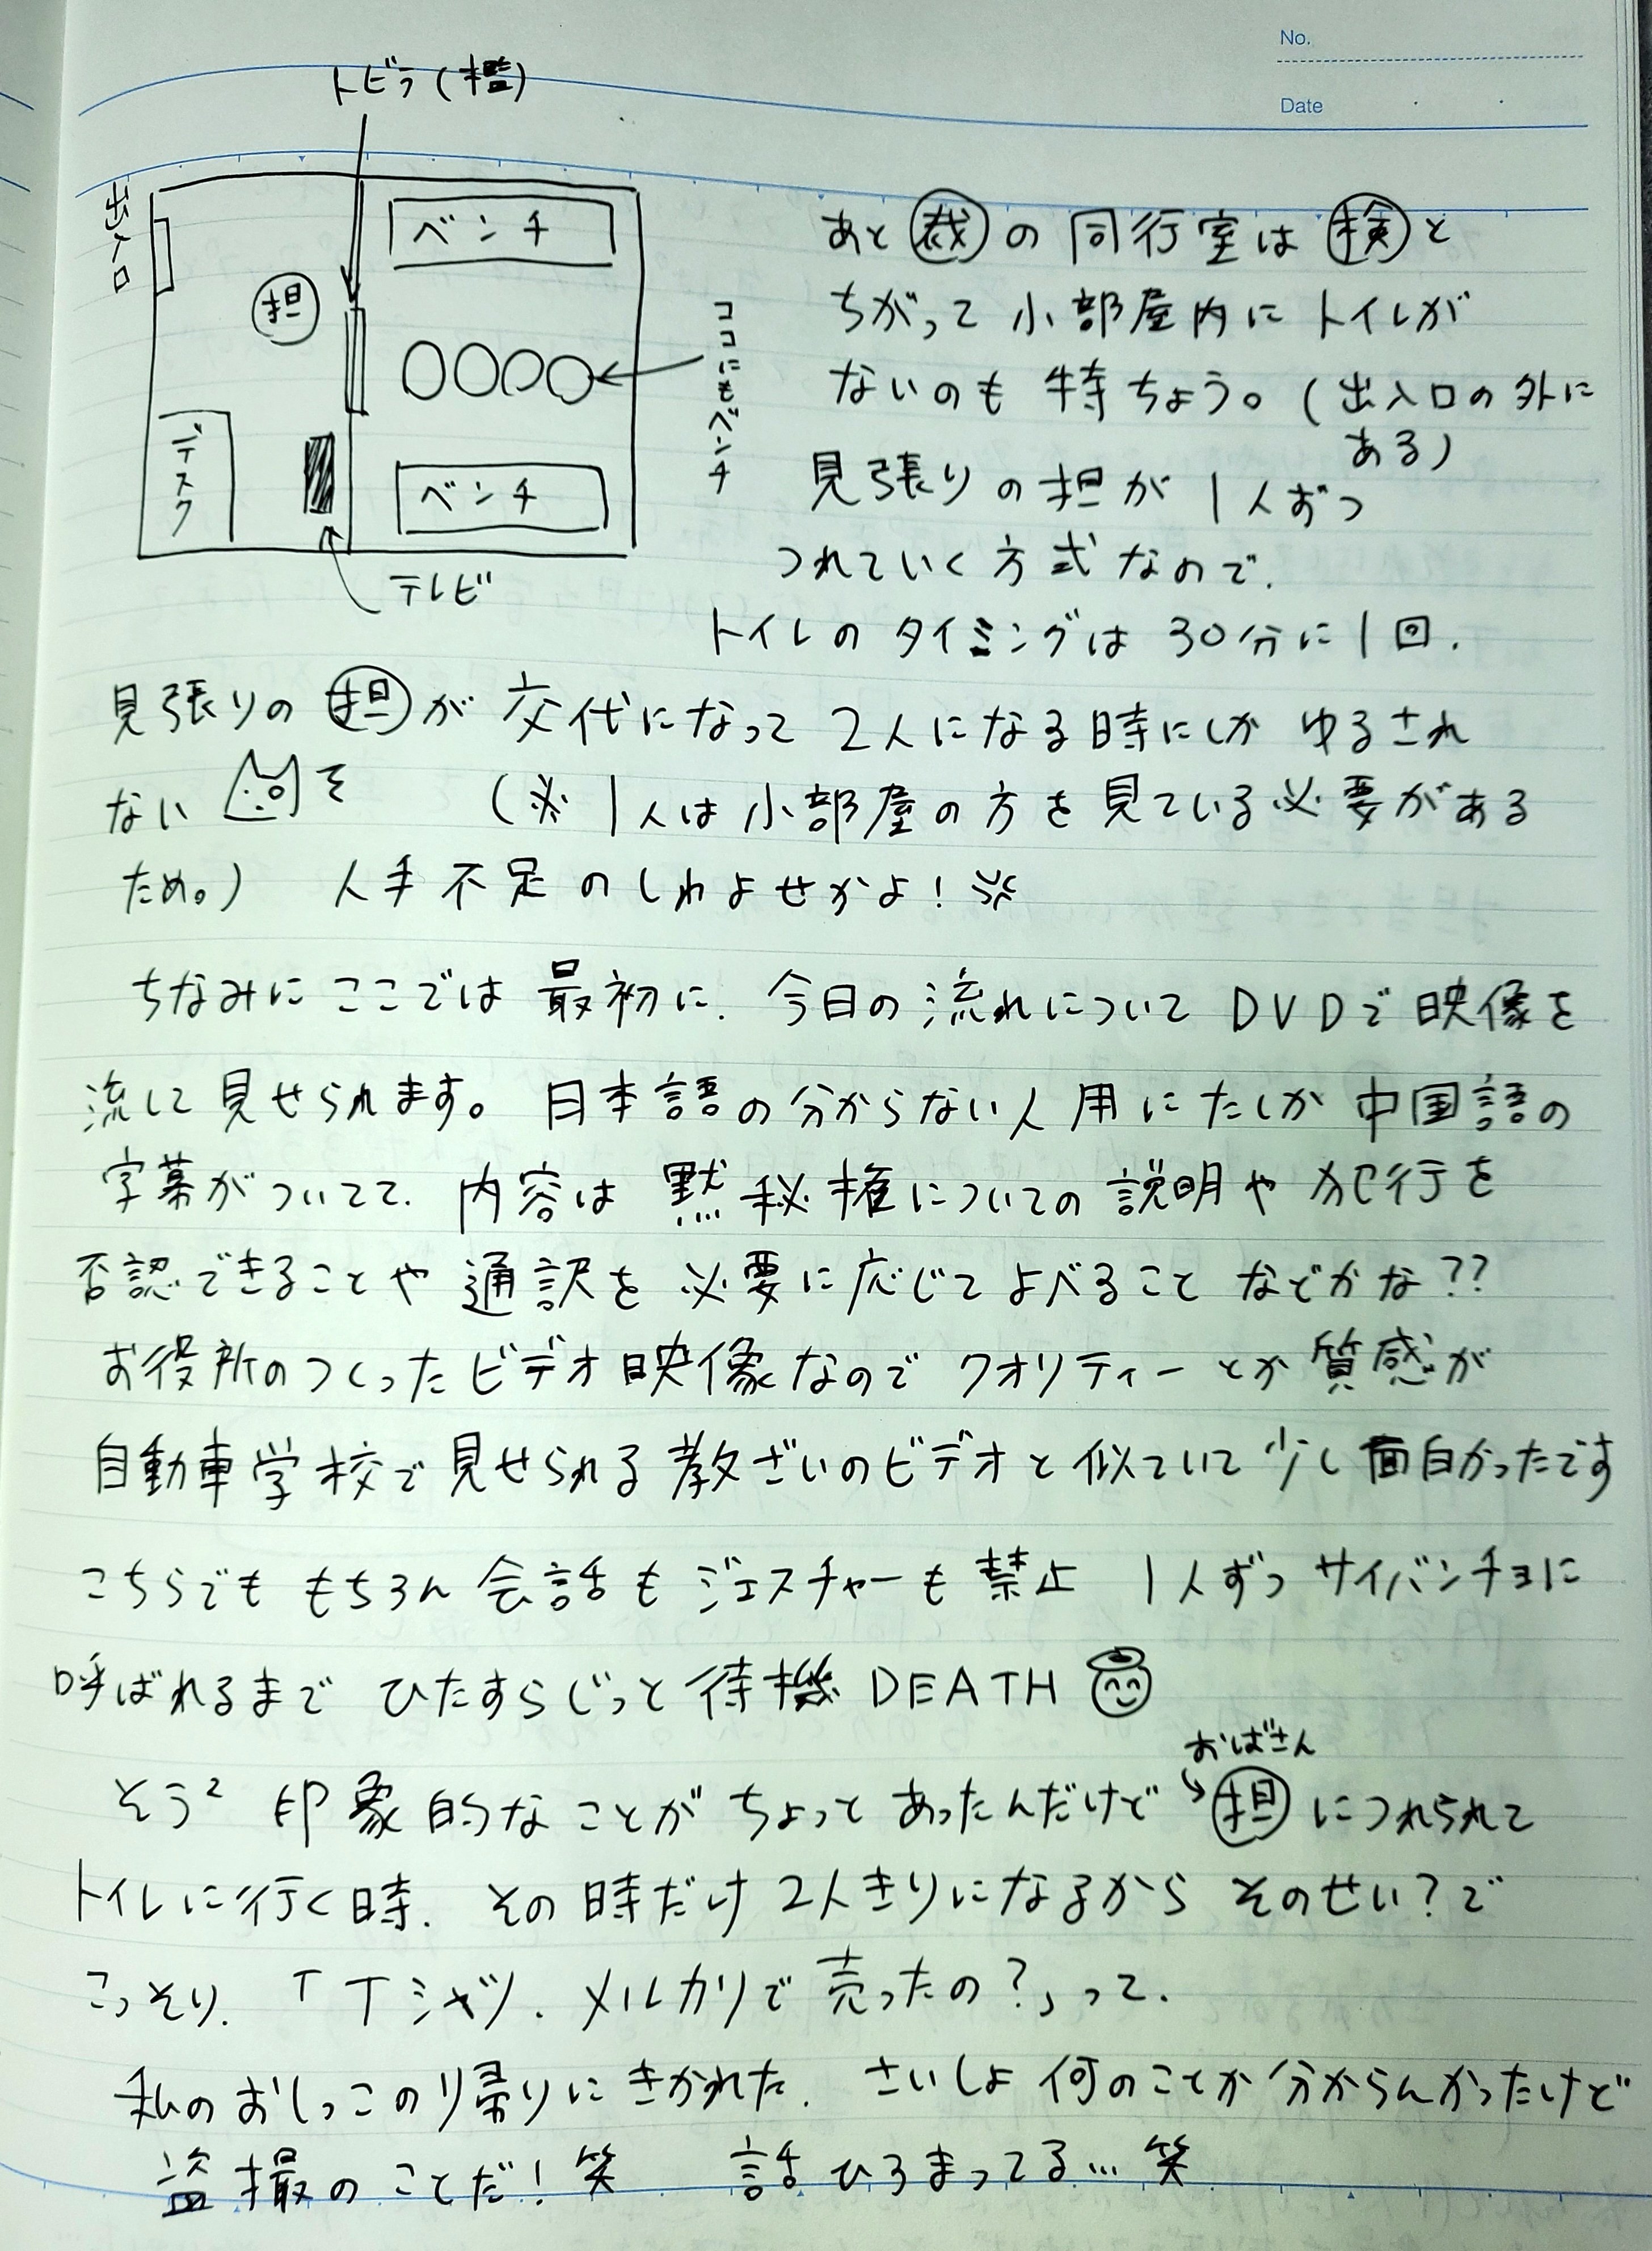 No.
Date
トビラ(檻)
出入口
ベンチ
担
ココにもベンチ
デスク
ベンチ
テレビ
あと裁の同行室は検と
ちがって小部屋内にトイレが
ないのも特ちょう。(出入口の外に
ある)
見張りの担が1人ずつ
つれていく方式なので、
トイレのタイミングは30分に1回.
見張りの担が交代になって2人になる時にしかゆるされ
ない そ (※1人は小部屋の方を見ている必要がある
ため。) 人手不足のしわよせかよ!
ちなみにここでは最初に、今日の流れについてDVDで映像を
流して見せられます。日本語の分からない人用にたしか中国語の
字幕がついてて、内容は黙秘権についての説明や犯行を
否認できることや通訳を必要に応じてよべることなどかな??
お役所のつくったビデオ映像なのでクオリティーとか質感が
自動車学校で見せられる教ざいのビデオと似ていて少し面白かったです
こちらでももちろん会話もジェスチャーも禁止 1人ずつサイバンチョに
呼ばれるまでひたすらじっと待機DEATH
おばさん
そう² 印象的なことがちょっとあったんだけど担につれられて
トイレに行く時、その時だけ2人きりになるからそのせい?で
こっそり、「Tシャツ、メルカリで売ったの?」って、
私のおしっこの帰りにきかれた、さいしょ何のことか分からんかったけど
盗撮のことだ!笑 話ひろまってる…笑